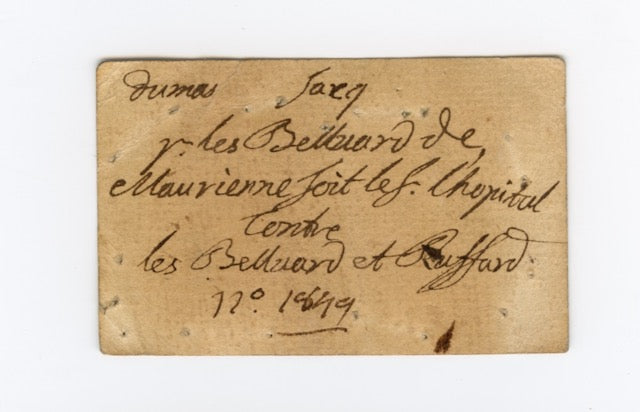 Dumas Jacq
pr. les Belluard de
Maurienne soit le Sr. Lhopital
Contre
les Belluard et Ruffard
N° 1849